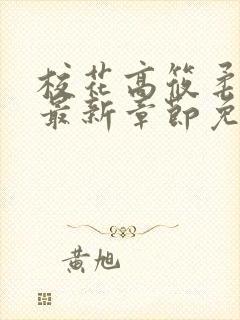 校花高筱柔
最新章节免
黄旭